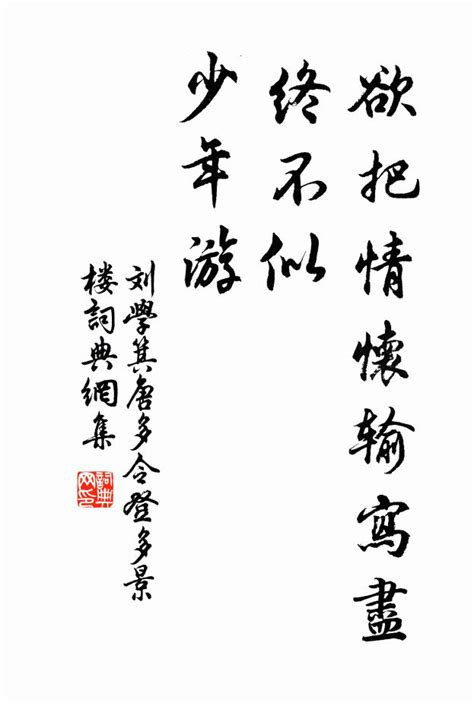 欲把情懷输寫盡
终不似
少年游
刘學箕唐多令登多景
楼詞典網集
詞典网印